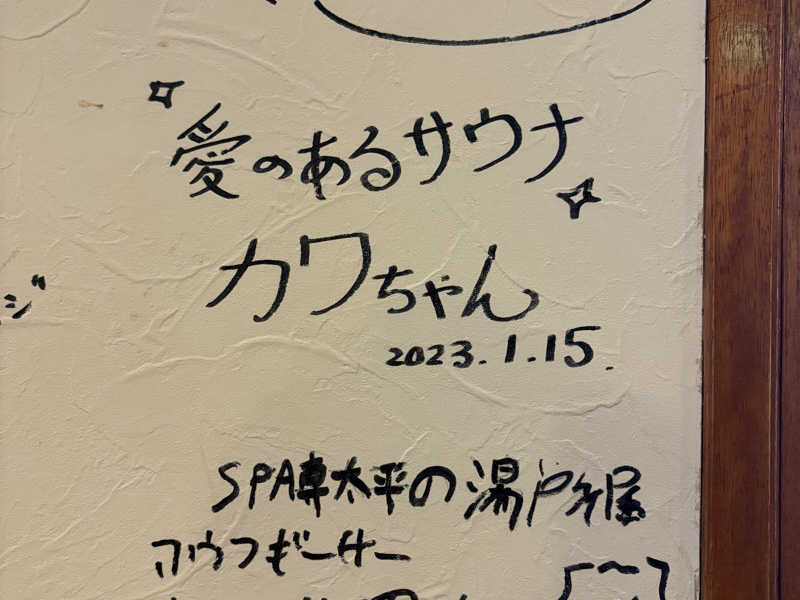 愛のあるサウナ
カワちゃん
2023.1.15.
ジ
SPA専太平の湯
アウフギーサー